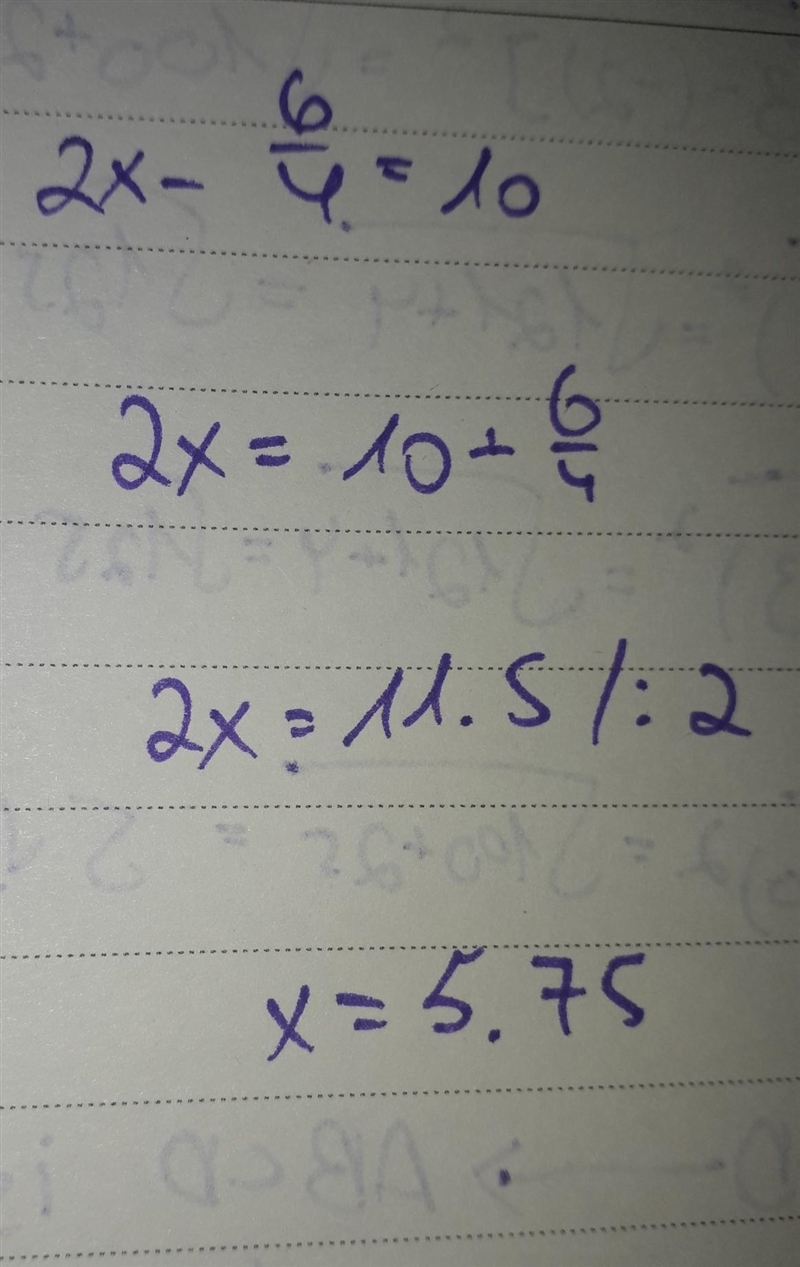 2x - 6/4 = 10
2x = 10 + 6/4
2x = 11.5 /: 2
x = 5.75